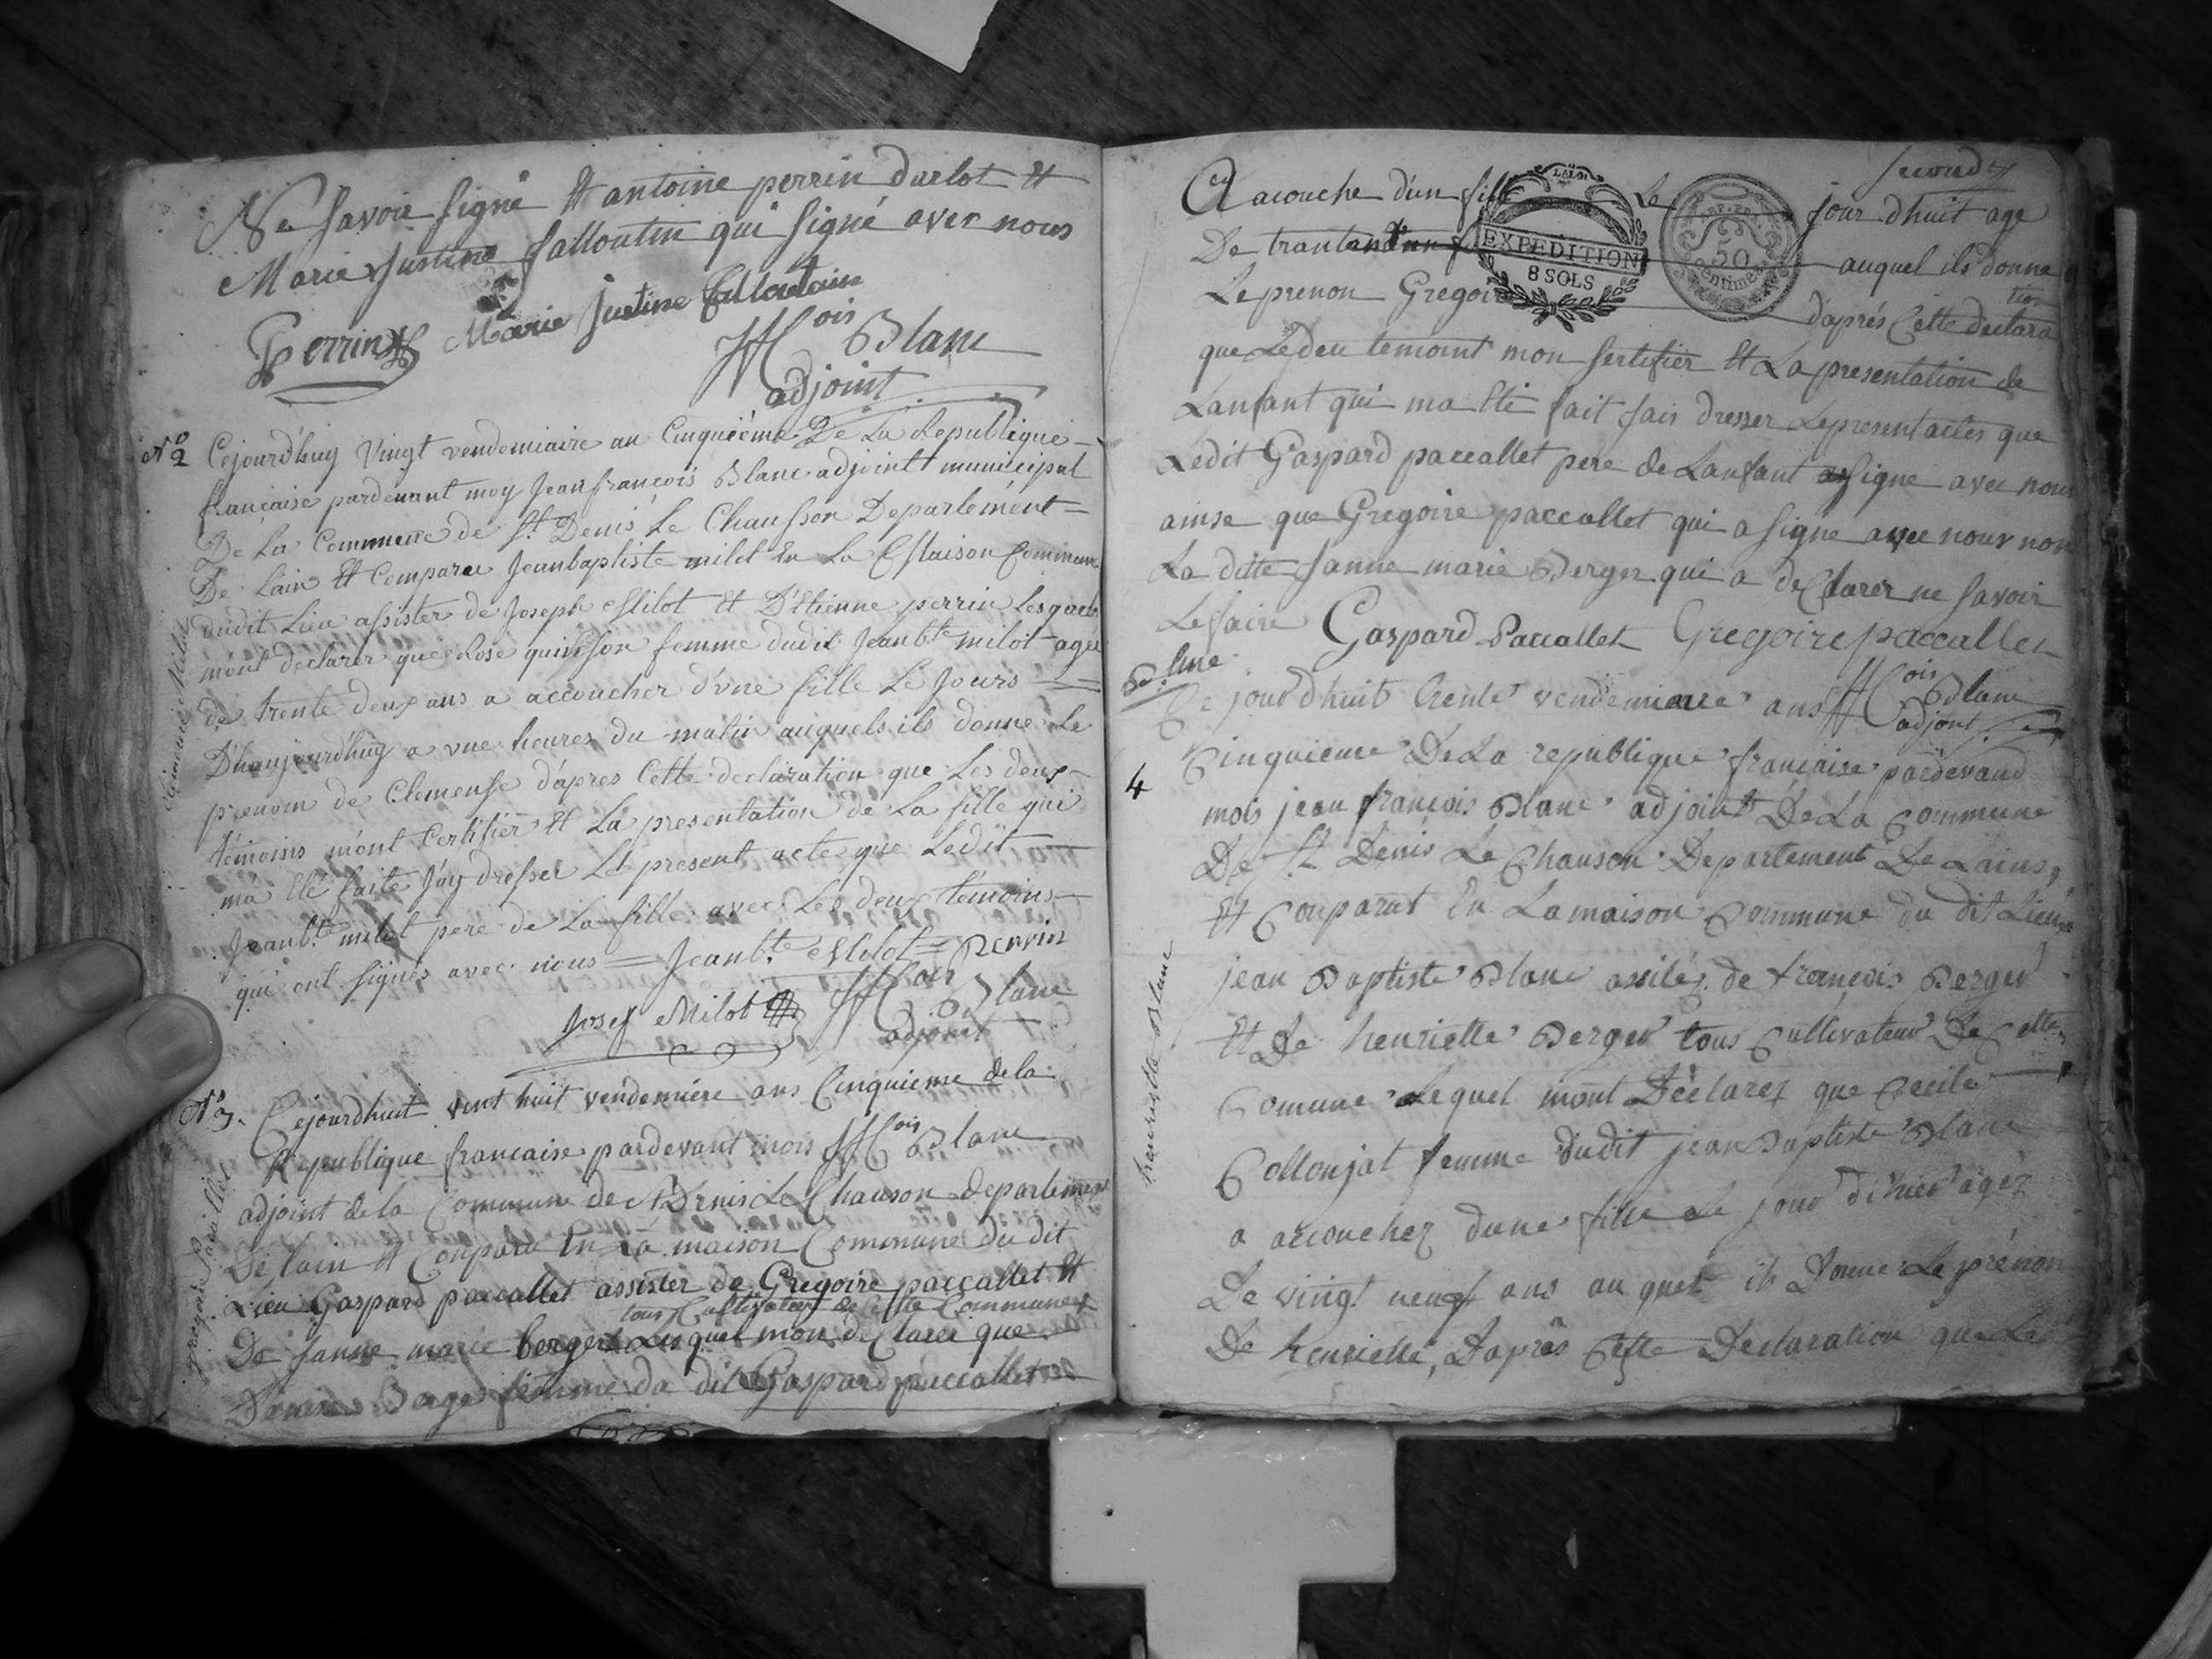 Ne savoir signé Et antoine perrin darlot Et
Marie Justine falloutin qui signé avec nous
Perrin Marie Justine falloutain
JFCois Blanc
adjoint
N° 2 Cejourd'huy Vingt vendemiaire an Cinquième De La Republique
française pardevant moy Jean francois Blanc adjoint municipal
De La Commune de St Denis Le Chausson Departement
De Lain Et Comparu Jeanbaptiste milot En La Maison Commune
dudit Lieu assister de Joseph Milot Et D'Etienne perrin Lesquels
mont declarer que Rose femme dudit Jeanbte milot agée
de trente deux ans a accoucher d'une fille Le Jours
D'haujourd'huy a une heures du matin auquels ils donne Le
prenom de Clemense d'apres Cette declaration que Les deux
temoins m'ont Certifier Et La presentation de La fille qui
m'a Eté faite J'ay dresser Le present acte que Ledit
Jeanbte milot pere de La fille avec Les deux temoins
qui ont signés avec nous = Jeanbte Milot = Perrin
Josef Milot JFCois Blanc
adjoint
Clémence Milot
N° 3. Cejourdhuit vint huit vendemiere ans Cinquieme de la
Republique francaise pardevant mois JFCois Blanc
adjoint de la Commune de St Denis Le Chauson departement
De lain Et Conparu En La maison Commune du dit
Lieu Gaspard paccallet assister de Gregoire paccallet Et
tous Cultivateur de Cette Commune
De Janne marie berger Lesquel mon declarer que
Berger femme du dit Gaspard paccallet
gregoire Pacallet
second
A acouche d'un fils Le jour dhuit age
De trant auquel ils donne
EXPEDITION
8 SOLS
50
Centimes
Le prenon Gregoire d'après Cette declara
tion
que Le deu temoint mon sertifier Et La presentation de
Lanfant qui ma Eté fait fais dresser Le present actes que
Ledit Gaspard paccallet pere de Lanfant signe avec nous
ainse que Gregoire paccallet qui a signe avec nous non
La ditte Janne marie Berger qui a declarer ne savoir
Le faire Gaspard Paccallet Gregoire paccallet
JFCois Blanc
adjoint
Ce jourdhuit trente vendemiere ans
4 Cinquieme De La republique française pardevand
mois jean françois Blanc adjoint De La Commune
De St Denis Le Chauson Departement De Lains
Et Conparut En La maison Commune du dit Lieu
jean Baptiste Blanc assité de francois Berger
Et De henriette Berger tous Cultivateur De Cette
Comune Lequel mont Déclarez que Cecile
Collonjat femme dudit jean Baptiste Blanc
a accouchez dune fille Le jour d'hier agéz
De vingt neuf ans au quel ils Donne Le prénon
De henriette, D'après Cette Declaration que Le
henriette Blanc